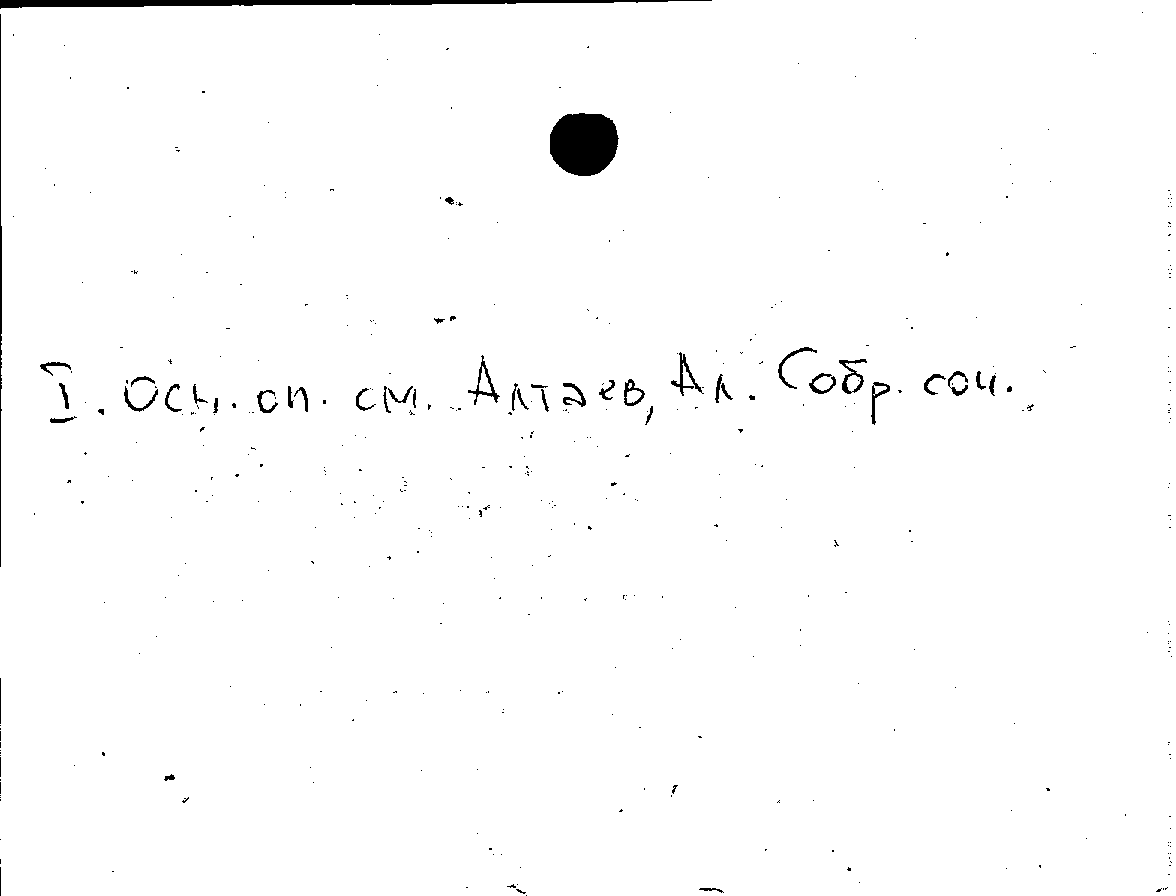 I. Осн. оп. см. Алтаев, Ал. Собр. соч.